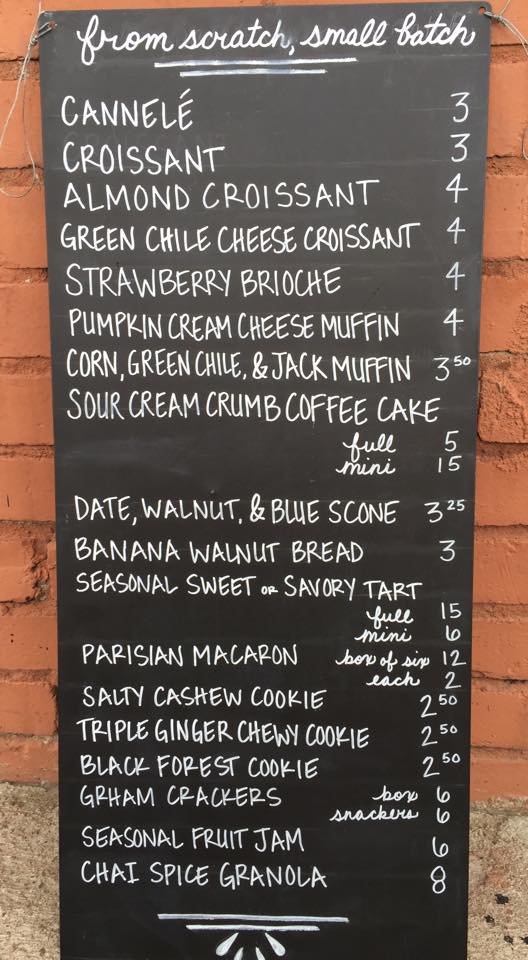 from scratch, small batch
CANNELÉ 3
CROISSANT 3
ALMOND CROISSANT 4
GREEN CHILE CHEESE CROISSANT 4
STRAWBERRY BRIOCHE 4
PUMPKIN CREAM CHEESE MUFFIN 4
CORN, GREEN CHILE, & JACK MUFFIN 3 50
SOUR CREAM CRUMB COFFEE CAKE
full 5
mini 15
DATE, WALNUT, & BLUE SCONE 3 25
BANANA WALNUT BREAD 3
SEASONAL SWEET OR SAVORY TART
full 15
mini 6
PARISIAN MACARON box of six 12
each 2
SALTY CASHEW COOKIE 2 50
TRIPLE GINGER CHEWY COOKIE 2 50
BLACK FOREST COOKIE 2 50
GRHAM CRACKERS box 6
snackers 6
SEASONAL FRUIT JAM 6
CHAI SPICE GRANOLA 8